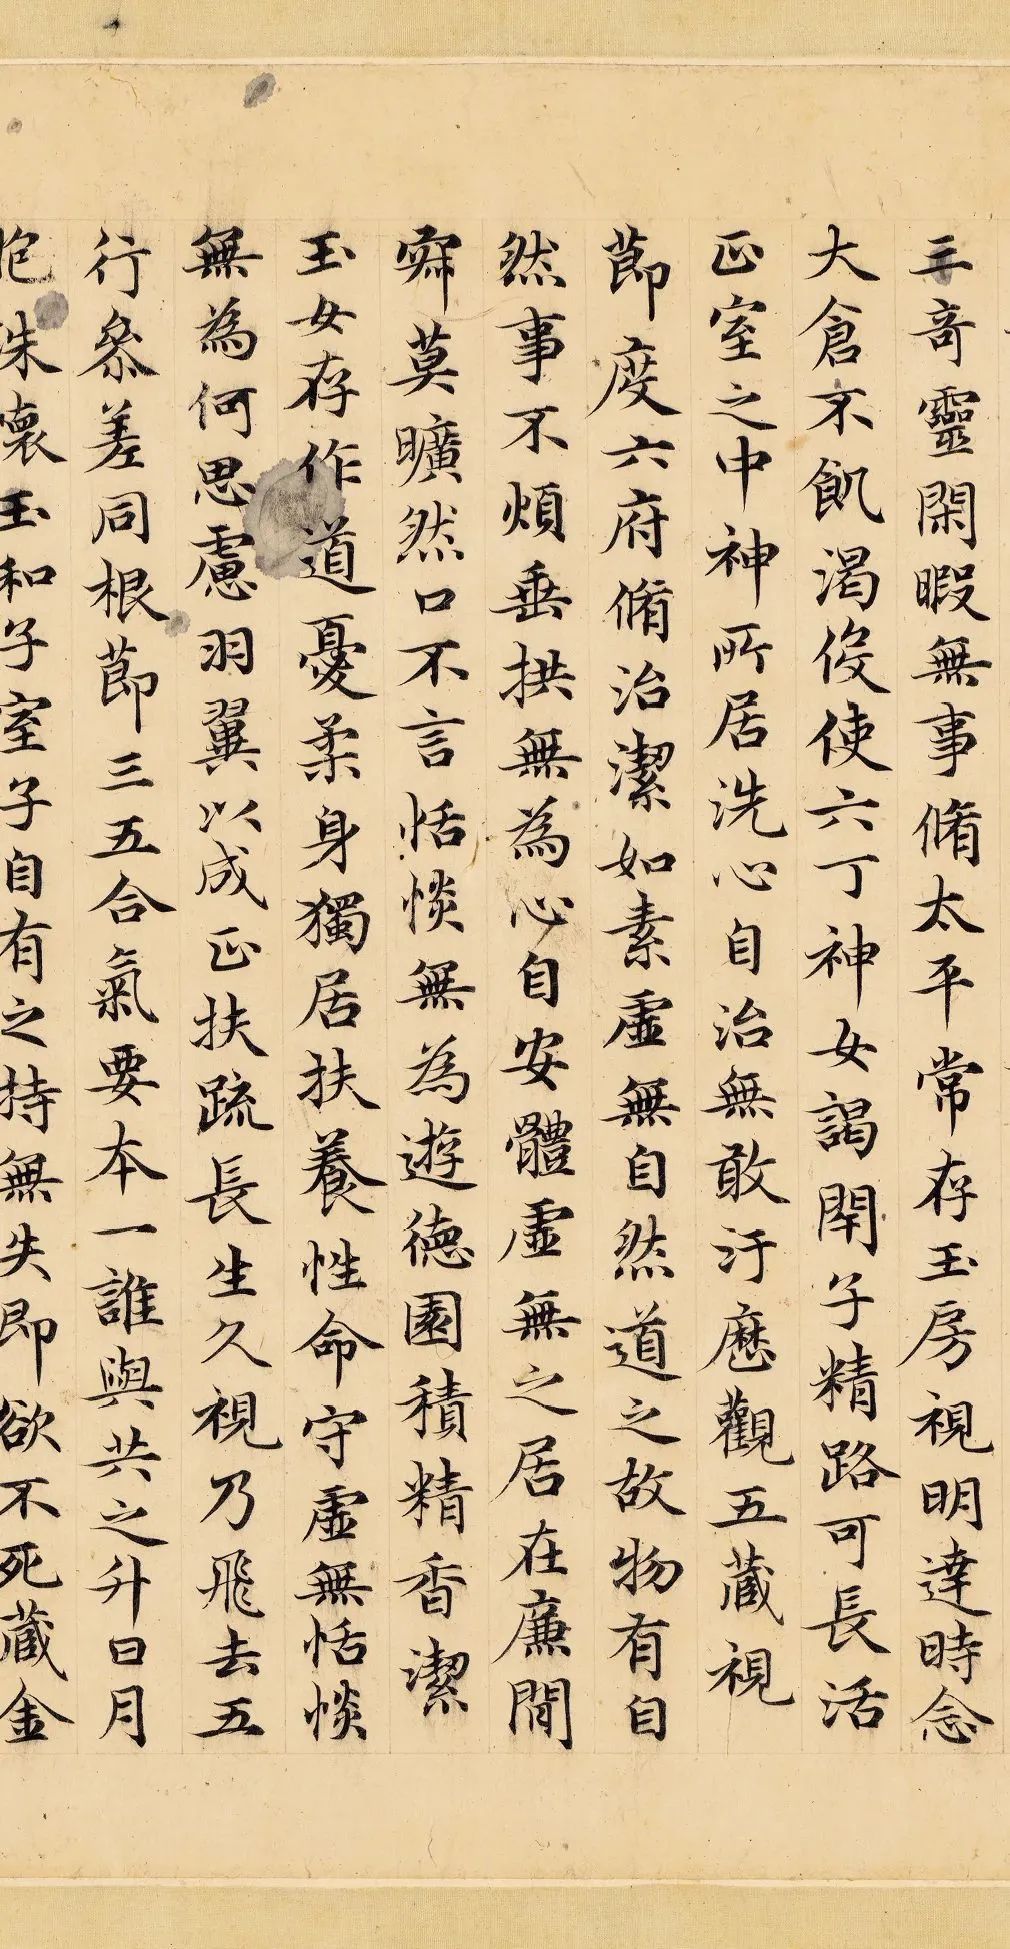 三奇靈閑暇無事脩太平常存玉房視明達時念
大倉不飢渴伇使六丁神女謁閇子精路可長活
正室之中神所居洗心自治無敢汙歷觀五藏視
節度六府脩治潔如素虛無自然道之故物有自
然事不煩垂拱無為心自安體虛無之居在廉間
寂莫曠然口不言恬惔無為遊德園積精香潔
玉女存作道憂柔身獨居扶養性命守虛無恬惔
無為何思慮羽翼以成正扶疏長生久視乃飛去五
行參差同根節三五合氣要本一誰與共之升日月
抱珠懷玉和子室子自有之持無失即欲不死藏金